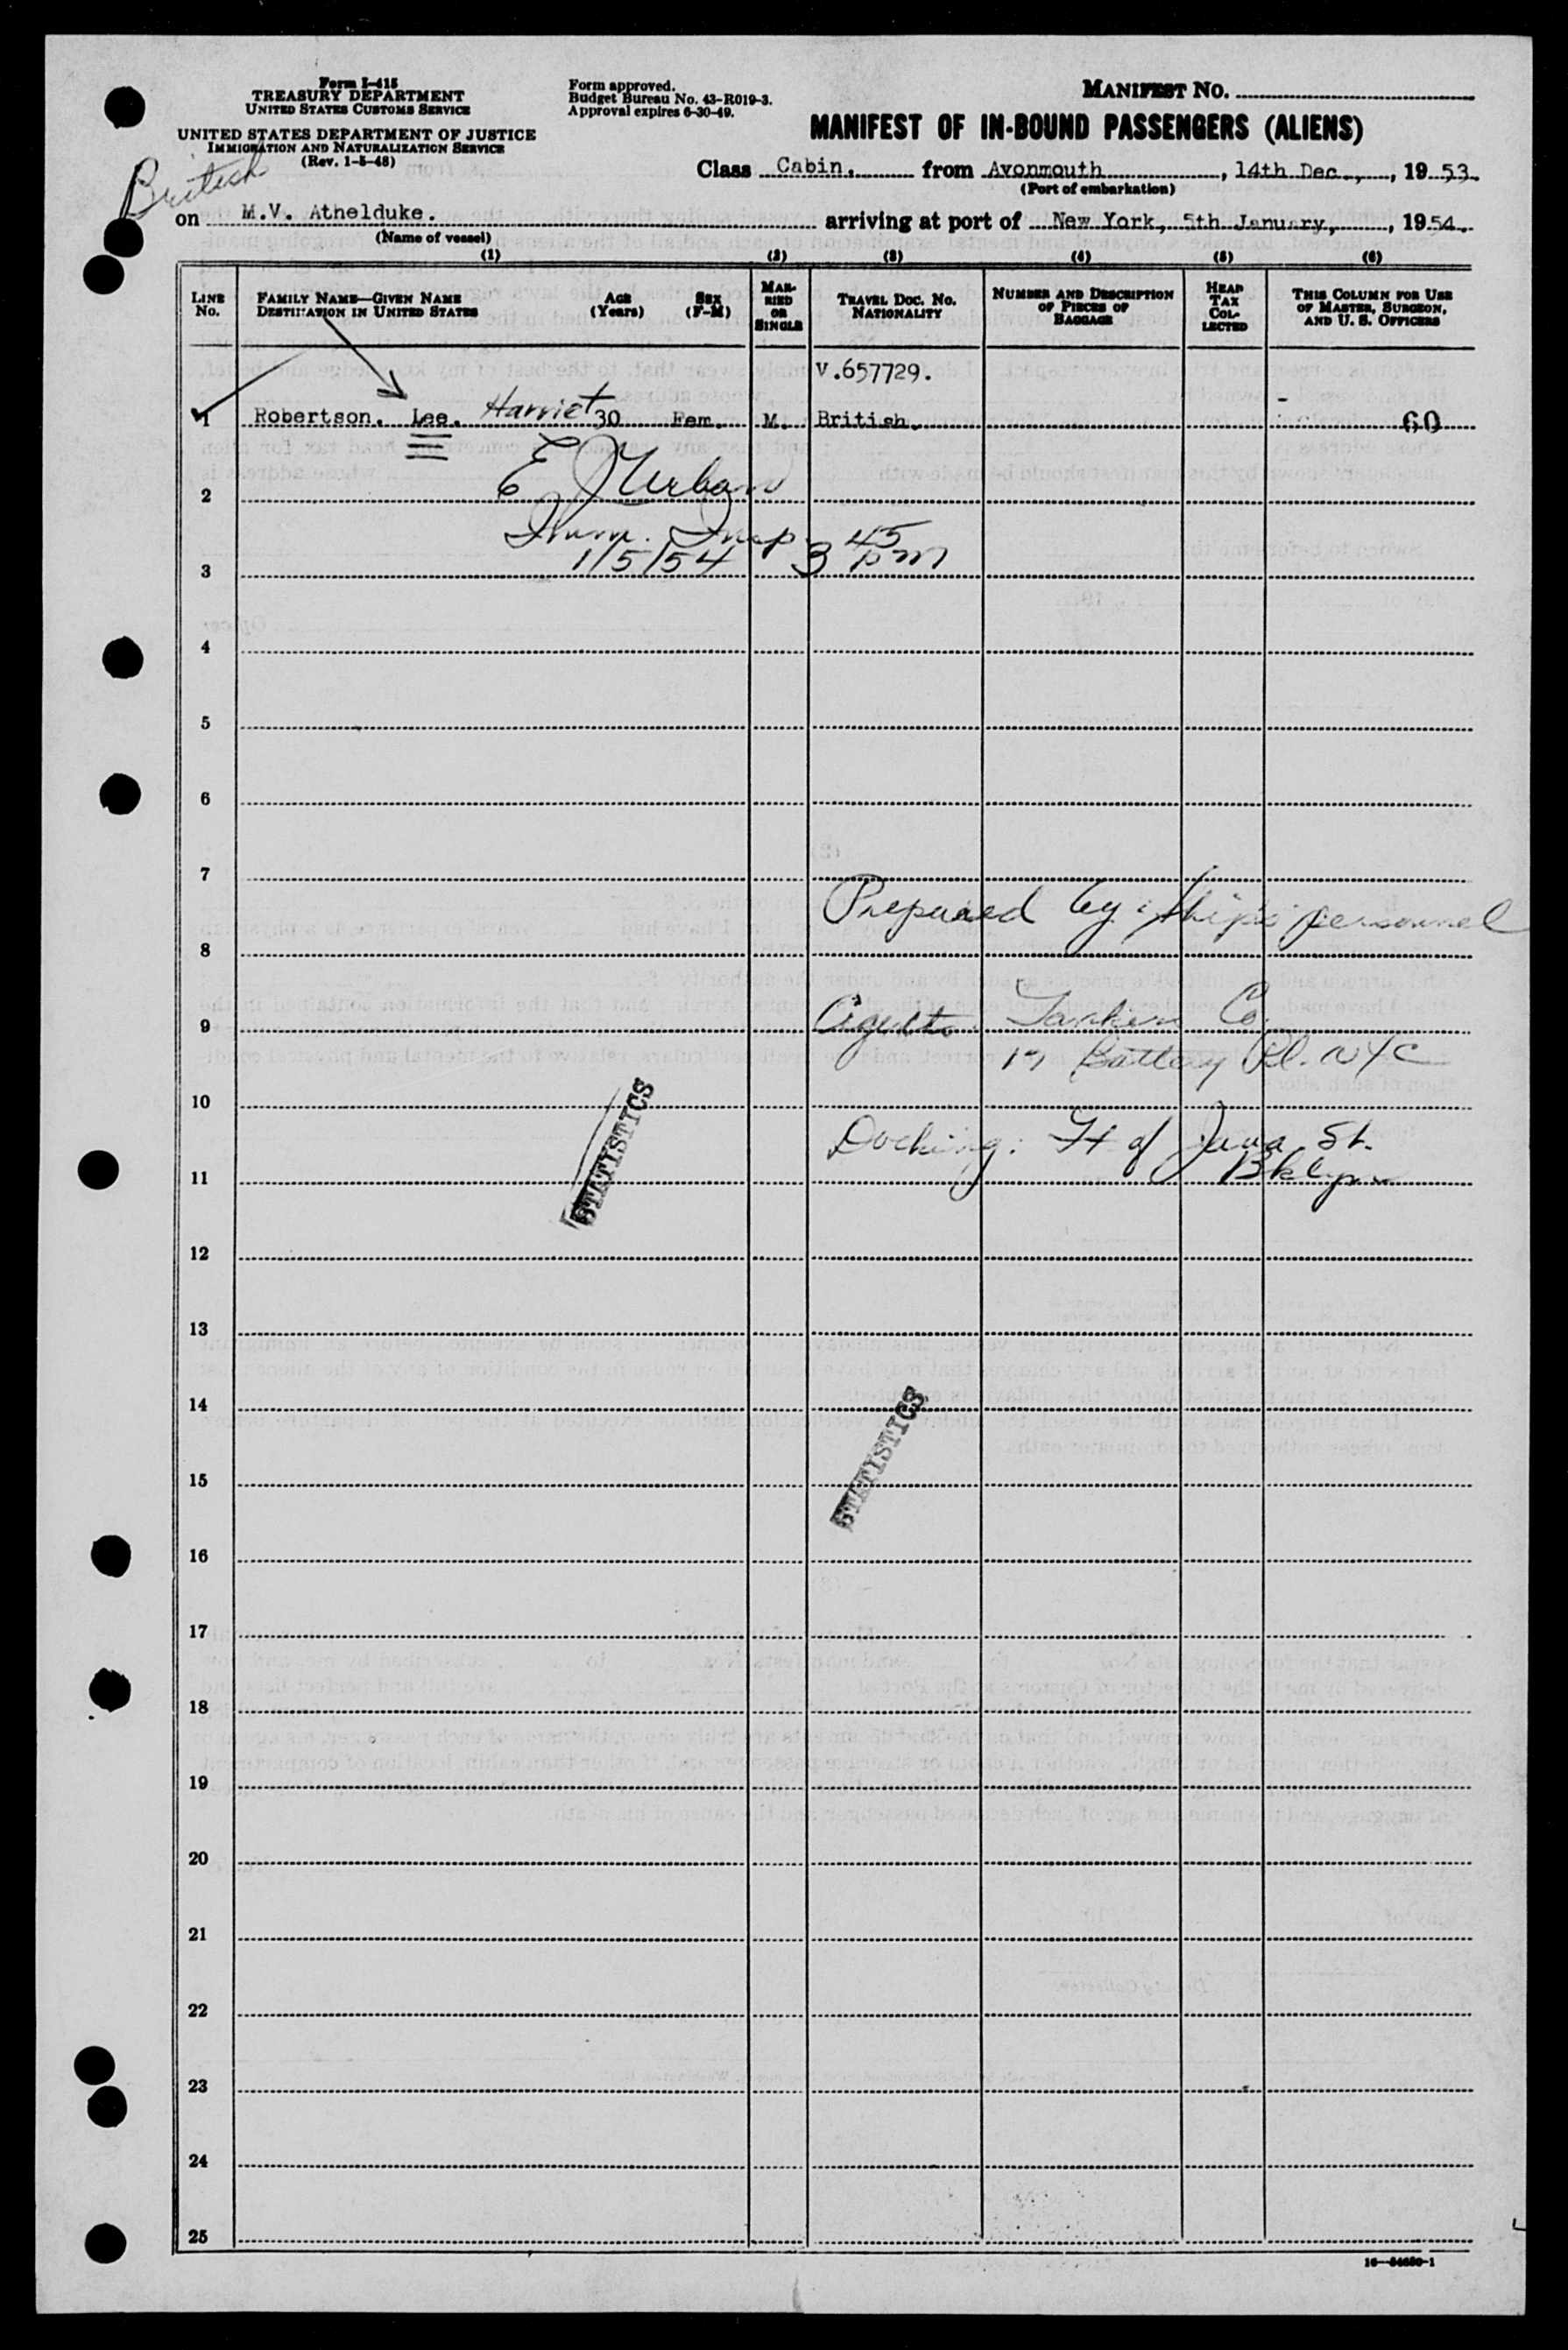 Form I-415
TREASURY DEPARTMENT
UNITED STATES CUSTOMS SERVICE
UNITED STATES DEPARTMENT OF JUSTICE
IMMIGRATION AND NATURALIZATION SERVICE
(Rev. 1-5-48)
Form approved.
Budget Bureau No. 43-R019-3.
Approval expires 6-30-49.
MANIFEST NO.
MANIFEST OF IN-BOUND PASSENGERS (ALIENS)
British
Class Cabin. from Avonmouth, 14th Dec., 1953.
(Port of embarkation)
on M.V. Athelduke. arriving at port of New York, 5th January, 1954.
(Name of vessel)
(1) (2) (3) (4) (5) (6)
LINE No.
FAMILY NAME—GIVEN NAME
DESTINATION IN UNITED STATES
AGE (Years)
SEX (F-M)
MARRIED OR SINGLE
TRAVEL DOC. NO.
NATIONALITY
NUMBER AND DESCRIPTION OF PIECES OF BAGGAGE
HEAD TAX COLLECTED
THIS COLUMN FOR USE OF MASTER, SURGEON, AND U. S. OFFICERS
V.657729.
1 Robertson. Lee. Harriet 30 Fem. M. British. 60
E J Urban
2
Imm. Insp. 3 45 pm
1/5/54
3
4
5
6
7
Prepared by ship's personnel
8
9 Agents Tankers Co.
17 Battery Pl. NYC
10
STATISTICS
Docking: Ft of Java St.
Bklyn
11
12
13
14
STATISTICS
15
16
17
18
19
20
21
22
23
24
25